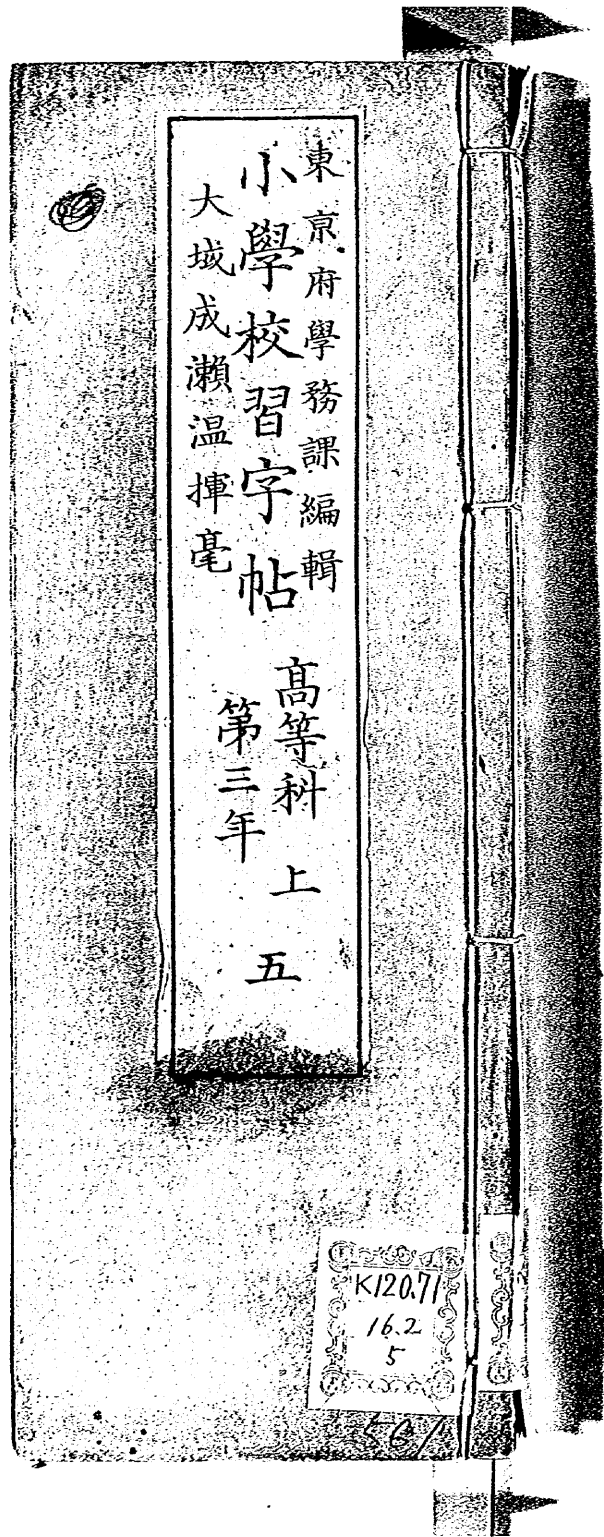 東京府學務課編輯
小學校習字帖 高等科 上 五
第三年
大域成瀨温揮毫
K120.71
16.2
5